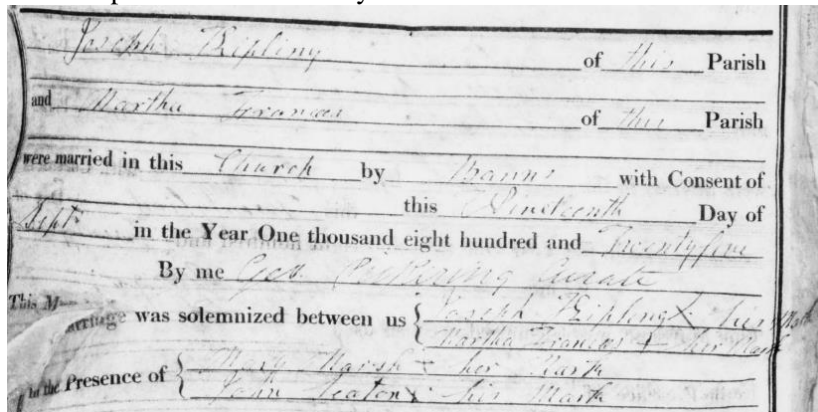 Joseph Kipling of this Parish
and Martha Frances of this Parish
were married in this Church by Banns with Consent of
this Nineteenth Day of
Septr in the Year One thousand eight hundred and Twentyfive
By me Geo Pickering Curate
This M
arriage was solemnized between us { Joseph Kipling X his Mark
Martha Frances + her Mark
In the Presence of { Mary Marsh + her Mark
John Seaton X his Mark